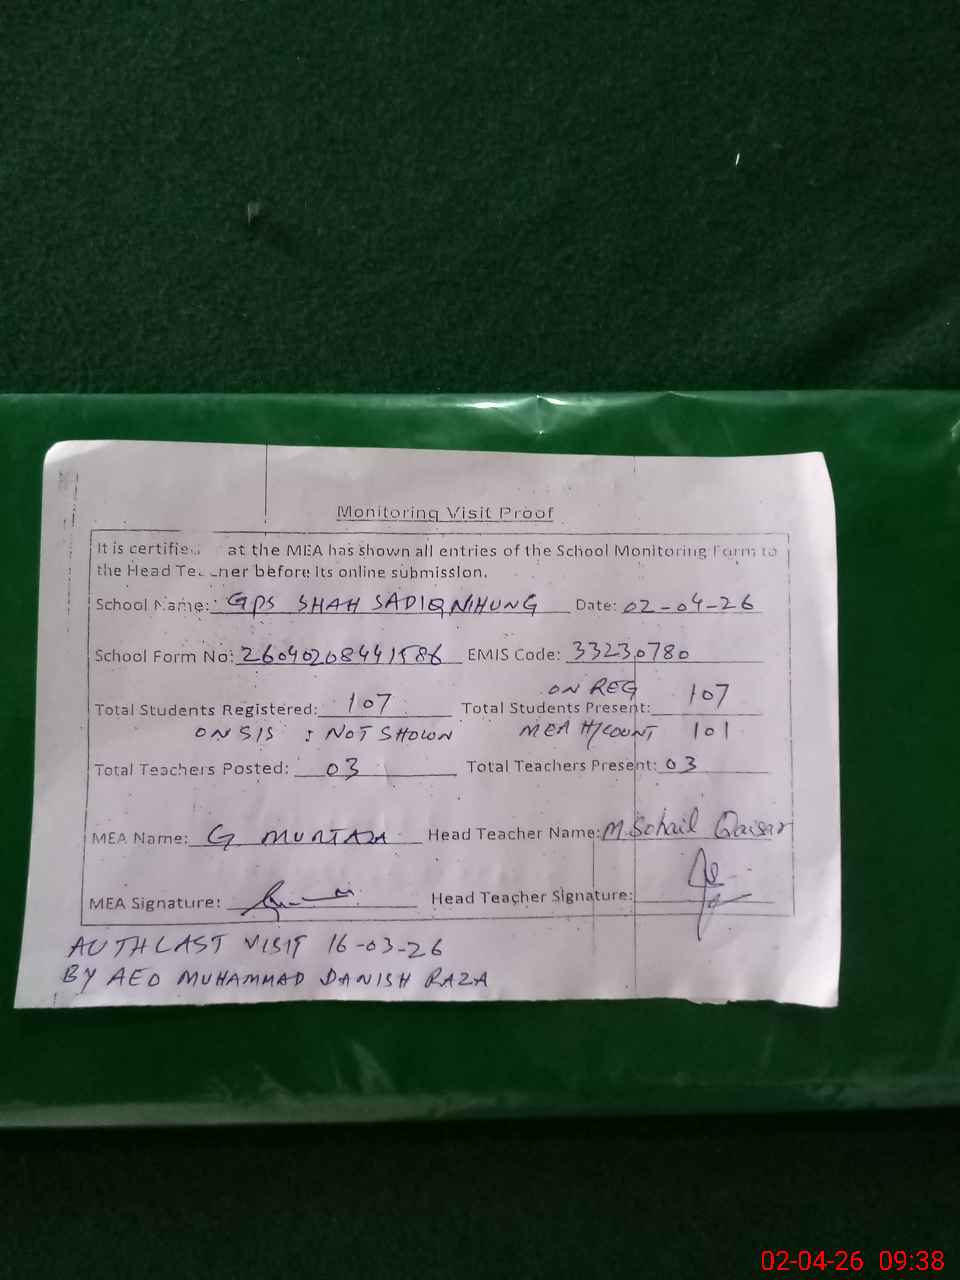 Monitoring Visit Proof
It is certified at the MEA has shown all entries of the School Monitoring Form to
the Head Teacher before its online submission.
School Name: GPS SHAH SADIQ NIHUNG Date: 02-04-26
School Form No: 26040208441586 EMIS Code: 33230780
ON REG
Total Students Registered: 107 Total Students Present: 107
ON SIS : NOT SHOWN MEA H/COUNT 101
Total Teachers Posted: 03 Total Teachers Present: 03
MEA Name: G MURTAZA Head Teacher Name: M. Sohail Qaisar
MEA Signature: Head Teacher Signature:
AUTH LAST VISIT 16-03-26
BY AEO MUHAMMAD DANISH RAZA
02-04-26 09:38